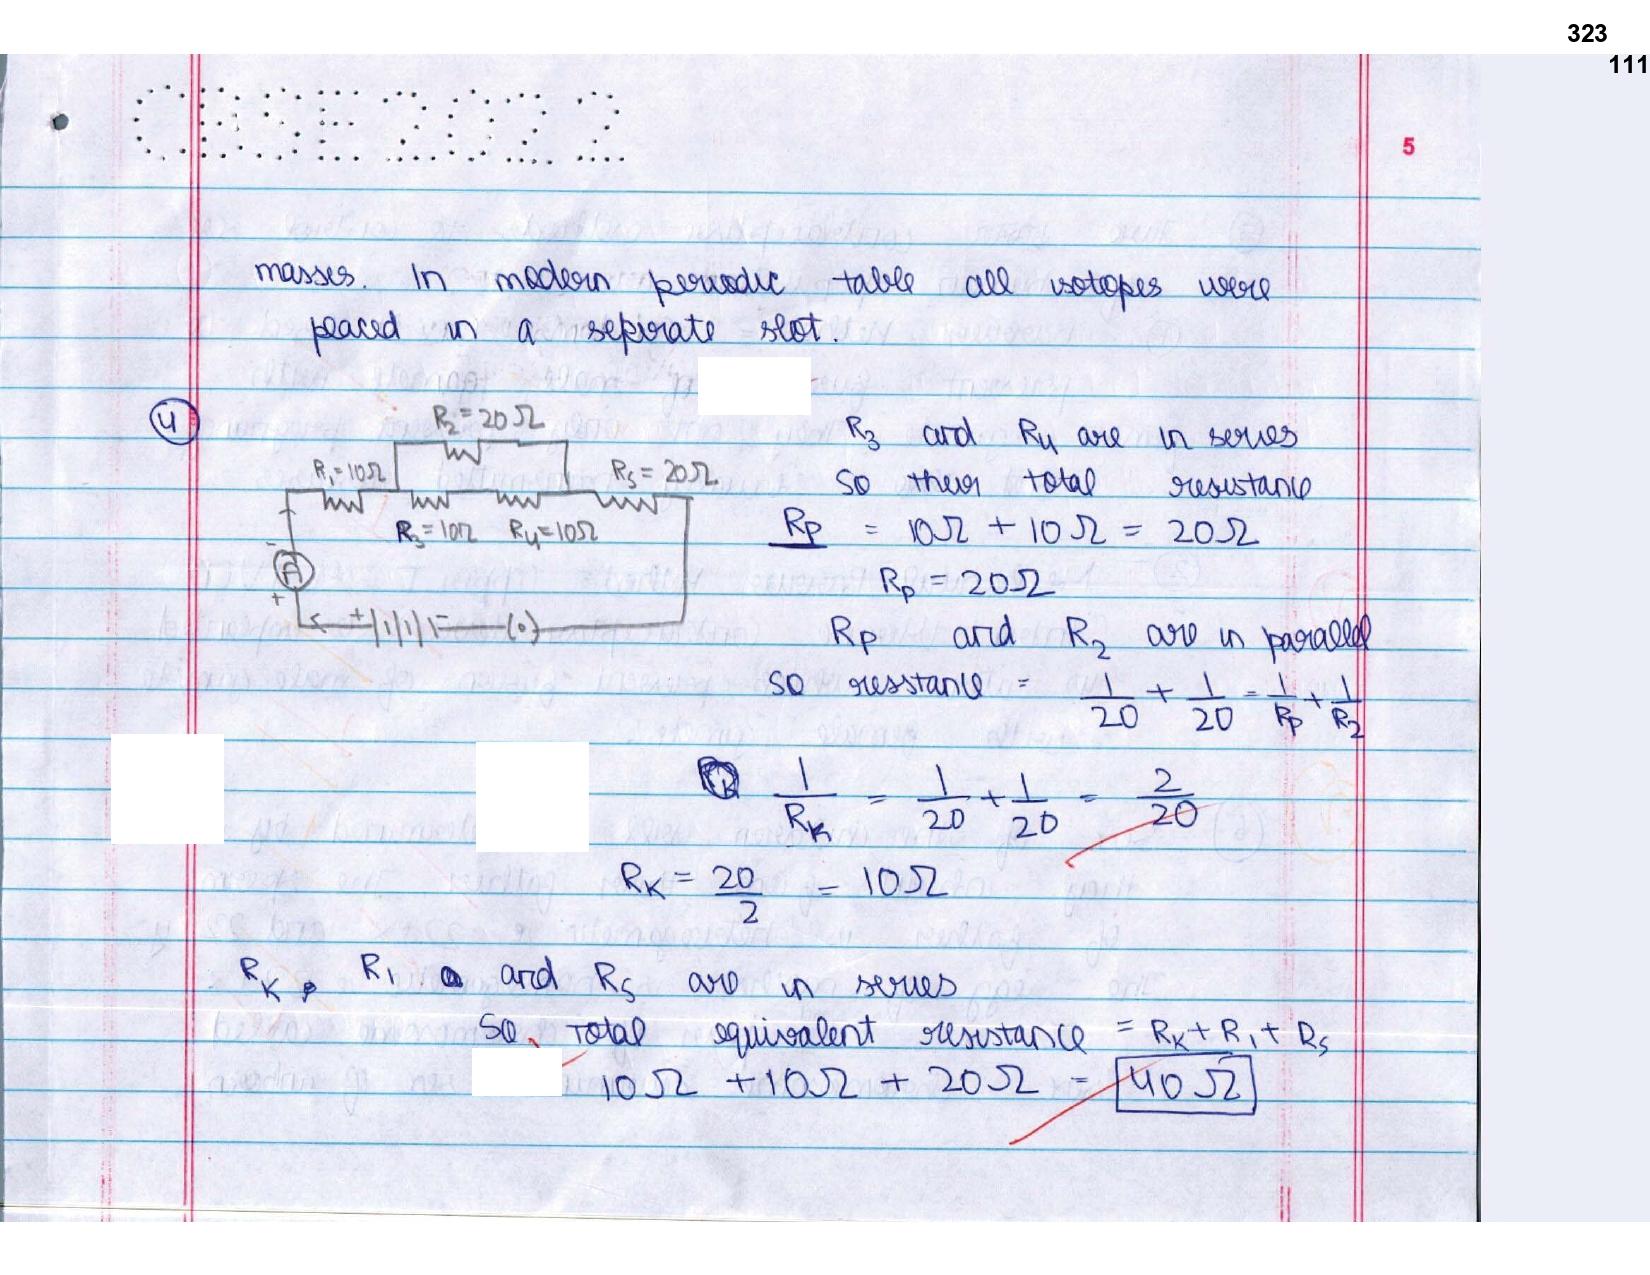 323
111
CBSE2022
5
masses. In modern periodic table all isotopes were
placed in a sepirate slot.
4
R₂=20Ω
R₁=10Ω
R₅=20Ω
R₃=10Ω R₄=10Ω
-
A
+
+ -
R₃ and R₄ are in series
So their total resistance
Rp = 10Ω + 10Ω = 20Ω
Rp = 20Ω
Rp and R₂ are in parallel
So resstance = 1/20 + 1/20 = 1/Rp + 1/R₂
1/Rk = 1/20 + 1/20 = 2/20
Rk = 20/2 = 10Ω
Rk, R₁ and R₅ are in series
So, Total equivalent resistance = Rk + R₁ + R₅
10Ω + 10Ω + 20Ω = 40Ω